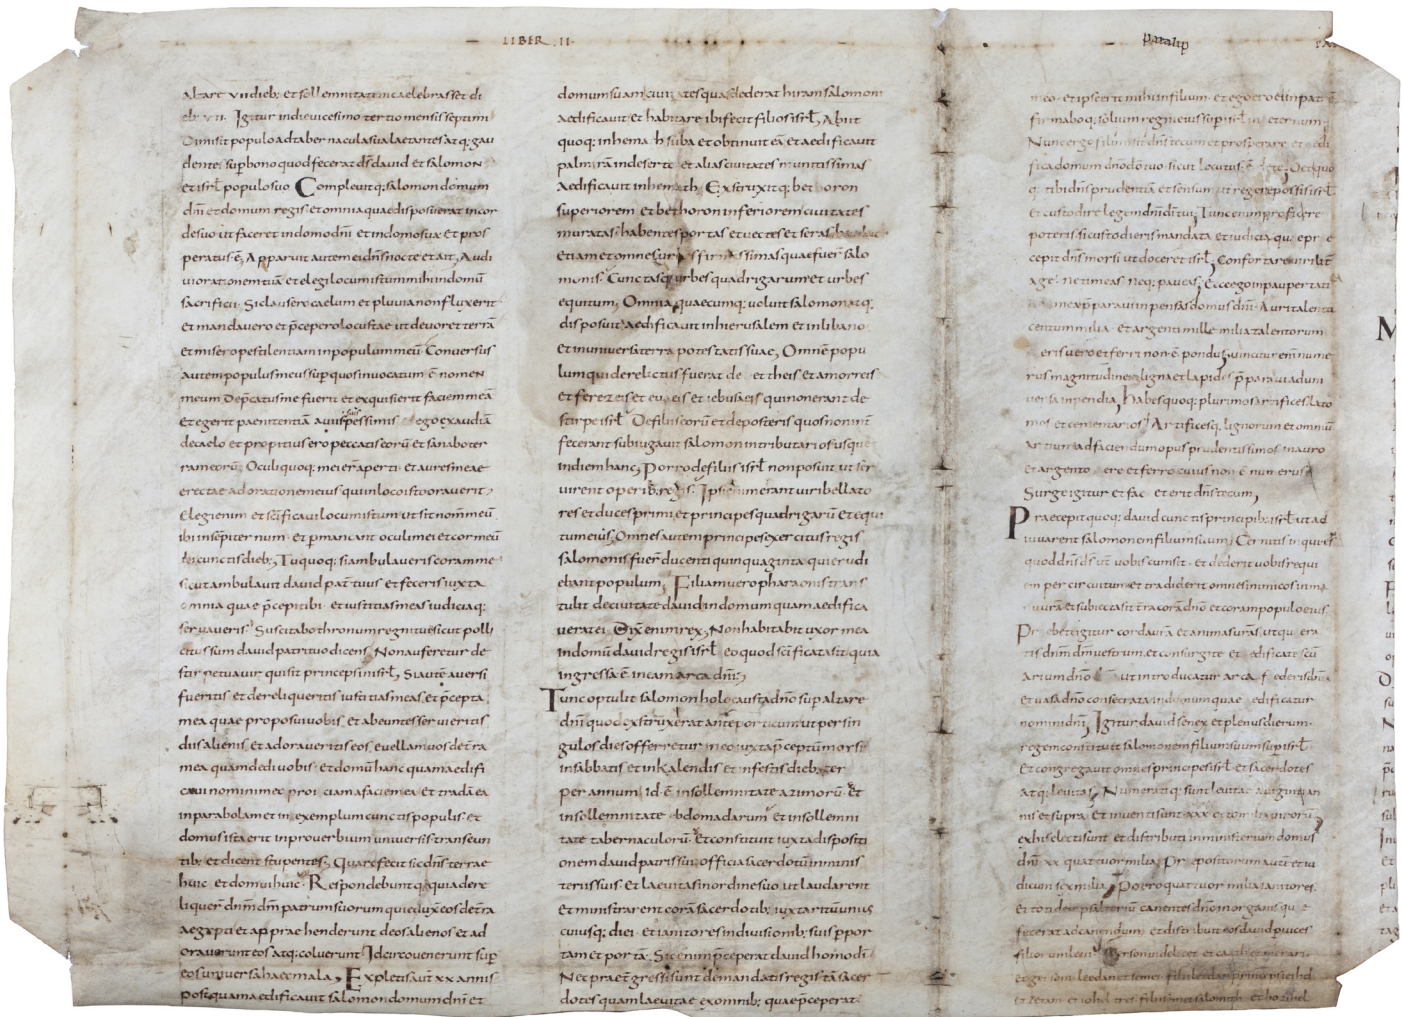 LIBER . II .
altare vii dieb; et sollemnitatem caelebrasset di
eb; vii . Igitur in die vicesimo tertio mensis septimi
Dimisit populo ad tabernacula sua laetantes atq; gau
dentes sup bono quod fecerat dn̄s david et salomon
et isrl̄ populo suo Complevitq; salomon domum
dn̄i et domum regis . et omnia quae disposuerat in cor
de suo ut faceret in domo dn̄i et in domo sua et pros
peratus ē; Apparuit autem ei dn̄s nocte et ait; Audi
vi orationem tuā et elegi locum istum mihi in domū
sacrificii . Si clausero caelum et pluvia non fluxerit
et mandavero et p̄cepero locustae ut devoret terrā
et misero pestilentiam in populum meū Conversus
autem populus meus sup quos invocatum ē nomen
meum Dep̄catus me fuerit et exquisierit faciem meā
et egerit paenitentiā a viis suis pessimis ego exaudiā
de caelo et propitius ero peccatis eorū et sanabo ter
ram eorū; Oculi quoq; mei er̄ aperti . et aures meae
erectae ad orationem eius qui in loco isto oraverit;
Elegi enim et sc̄ificavi locum istum ut sit nom̄ meū
ibi in sēpiternum . et p̄maneant oculi mei et cor meū
ibi cunctis dieb; Tu quoq; si ambulaveris coram me
sicut ambulavit david pat̄ tuus et feceris iuxta
omnia quae p̄cepi tibi . et iustitias meas iudiciaq;
servaveris . Suscitabo thronum regni tui sicut polli
citus sum david patri tuo dicens; Non auferetur de
stirpe tua vir qui sit princeps in isrl̄; Si aut̄ aversi
fueritis et dereliqueritis iustitias meas et p̄cepta
mea quae proposui vobis . et abeuntes servieritis
diis alienis . et adoraveritis eos . evellam vos de t̄ra
mea quam dedi vobis . et domū hanc quam aedifi
cavi nomini meo proiciam a facie mea . et tradā eā
in parabolam et in exemplum cunctis populis . et
domus ista erit in proverbium universis transeun
tib; et dicent stupentes; Quare fecit sic dn̄s terrae
huic . et domui huic . Respondebuntq; quia dere
liquer̄ dn̄m dm̄ patrum suorum qui eduxē eos de t̄ra
aegypti et apprachenderunt deos alienos et ad
oraverunt eos atq; coluerunt Idcirco venerunt sup
eos universa haec mala; Expletis aut̄ xx annis
postquam aedificavit salomon domum dn̄i et
domum suam civitates quas dederat hiram salomoni
aedificavit et habitare ibi fecit filios isrl̄; Abiit
quoq; in hemath suba et obtinuit eā et aedificavit
palmirā in deserto et alias civitates munitissimas
Aedificavit in hemath Extruxitq; bethoron
superiorem et bethoron inferiorem civitates
muratas habentes portas et vectes et seras
etiam et omnes urbes firmissimas quae fuer̄ salo
monis . Cunctasq; urbes quadrigarum et urbes
equitum; Omnia quaecumq; voluit salomon atq;
disposuit aedificavit in hierusalem et in libano
et in universa terra potestatis suae; Omnē popu
lum qui derelictus fuerat de etheis et amorreis
et ferezeis et eveis et iebuseis qui non erant de
stirpe isrl̄ . De filiis eorū et de posteris quos non int̄
fecerant subiugavit salomon in tributarios usque
in diem hanc; Porro de filiis isrl̄ non posuit ut ser
virent operib; regis; Ipsi enim erant viri bellato
res et duces primi et principes quadrigarū et equi
tum eius; Omnes autem principes exercitus regis
salomonis fuer̄ ducenti quinquaginta qui erudi
ebant populum; Filiam vero pharaonis trans
tulit de civitate david in domum quam aedifica
verat ei . Dix̄ enim rex; Non habitabit uxor mea
in domū david regis isrl̄ . eo quod sc̄ificata sit quia
ingressa ē in eam arca dn̄i;
Tunc optulit salomon holocausta dn̄o sup altare
dn̄i quod exstruxerat ante porticum ut per sin
gulos dies offerretur in eo iuxta p̄ceptū morsi
in sabbatis et in kalendis et in festis dieb; ter
per annum . id ē . in sollemnitate azimorū . et
in sollemnitate ebdomadarum et in sollemni
tate tabernaculorū . Et constituit iuxta dispositi
onem david patris sui officia sacerdotū in minis
teriis suis . et laevitas in ordine suo ut laudarent
et ministrarent corā sacerdotib; iuxta ritū unius
cuiusq; diei . et ianitores in divisionib; suis p̄ por
tam et portā . Sic enim p̄ceperat david homo di
Nec praet̄gressi sunt de mandatis regis tā sacer
dotes quam laevitae ex omnib; quae p̄ceperat
paralip̄
meo . et ipse erit mihi in filium . et ego ero ei in patrē
firmaboq; solium regni eius sup isrl̄ in eternum
Nunc ergo fili mi sit dn̄s tecum et prosperare et aedi
fica domum dn̄o dō tuo sicut locutus . ē de te; Det quo
q; tibi dn̄s prudentiā et sensum ut regere possis isrl̄
et custodire legem dn̄i di tui; Tunc enim proficere
poteris si custodieris mandata et iudicia quae prae
cepit dn̄s morsi ut doceret isrl̄; Confortare viriliter
age . ne timeas neq; paveas; Ecce ego in paupertati
mea p̄paravi inpensas domus dn̄i . Auri talenta
centum milia . et argenti mille milia talentorum
eris vero et ferri non ē pondus; vincitur enī nume
rus magnitudine; ligna et lapides p̄paravi ad uni
versa inpendia; habes quoq; plurimos artifices lato
mos et cementarios Artificesq; lignorum et omniū
artium ad faciendum opus prudentissimos in auro
et argento aere et ferro cuius non ē numerus
Surge igitur et fac . et erit dn̄s tecum;
Praecepit quoq; david cunctis principib; isrl̄ ut ad
iuvarent salomonem filium suum; Cernitis inquiens
quod dn̄s ds̄ ur̄ vobiscum sit . et dederit vobis requi
em per circuitum et tradiderit omnes inimicos in manu
vurā et subiecta sit t̄ra corā dn̄o et coram populo eius
Prebete igitur corda ur̄a et animas ur̄as ut quera
tis dn̄m dm̄ vestrum . et consurgite et aedificate scū
arium dn̄o ut introducatur arca foederis dn̄i
et vasa dn̄o consecrata in domum quae aedificatur
nomini dn̄i; Igitur david senex et plenus dierum
regem constituet salomonem filium suum sup isrl̄
et congregavit omnes principes isrl̄ et sacerdotes
atq; levitas; Numeratiq; sunt levitae a triginta an
nis et supra . et inventi sunt xxx octo milia virorū;
ex his electi sunt et distributi in ministerium domus
dn̄i xx quattuor milia; Prepositorum aut̄ et iu
dicum sex milia; Porro quattuor milia ianitores .
et totidem psalteriū canentes dn̄o in organis que
fecerat ad canendum . et distribuit eos david p̄ vices
filiorum levi Gerson videlicet et caath et merari